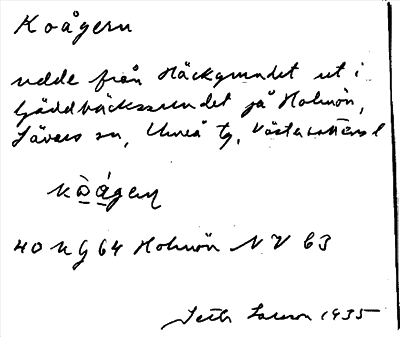 Koågern
udde från Häckgrundet ut i
Gäddbäckssundet på Holmön,
Sävars sn, Umeå tg, Västerbottens l
kòágen
40 K G 64 Holmön NV 63
Seth Larsson 1935